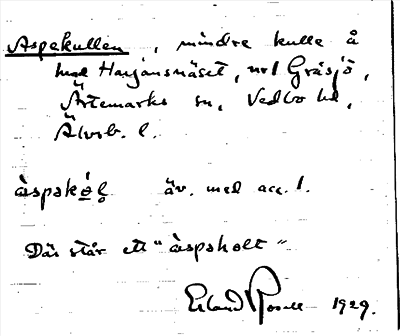 Aspekullen, mindre kulle å
hmd Harjansnäset, nv1 Gräsjö,
Ärtemarks sn, Vedbo hd,
Älvsb. l.
àspskó̱l̥ äv. med acc. 1.
Där står ett "àspsholt"
Erland Rosell 1929.